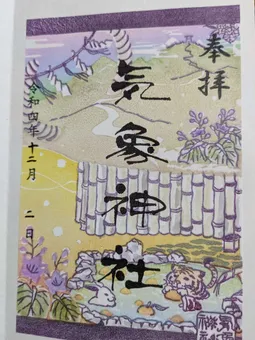 奉拝
気象神社
令和四年十二月 二日